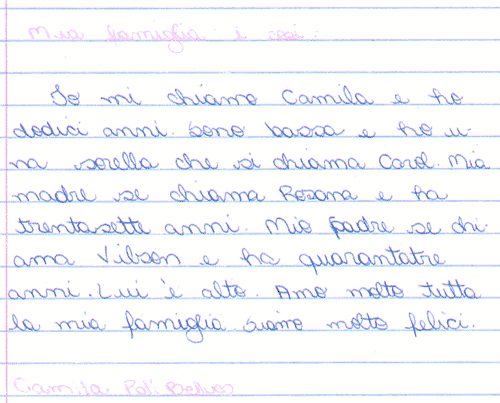 Mia famiglia i così.
Io mi chiamo Camila e ho
dodici anni. Sono bassa e ho u-
na sorella che si chiama Carol. Mia
madre se chiama Rosana e ha
trentasette anni. Mio padre se chi-
ama Vilson e ha quarantatre
anni. Lui 'e alto. Amo molto tutta
la mia famiglia. Siamo molto felici.
Camila